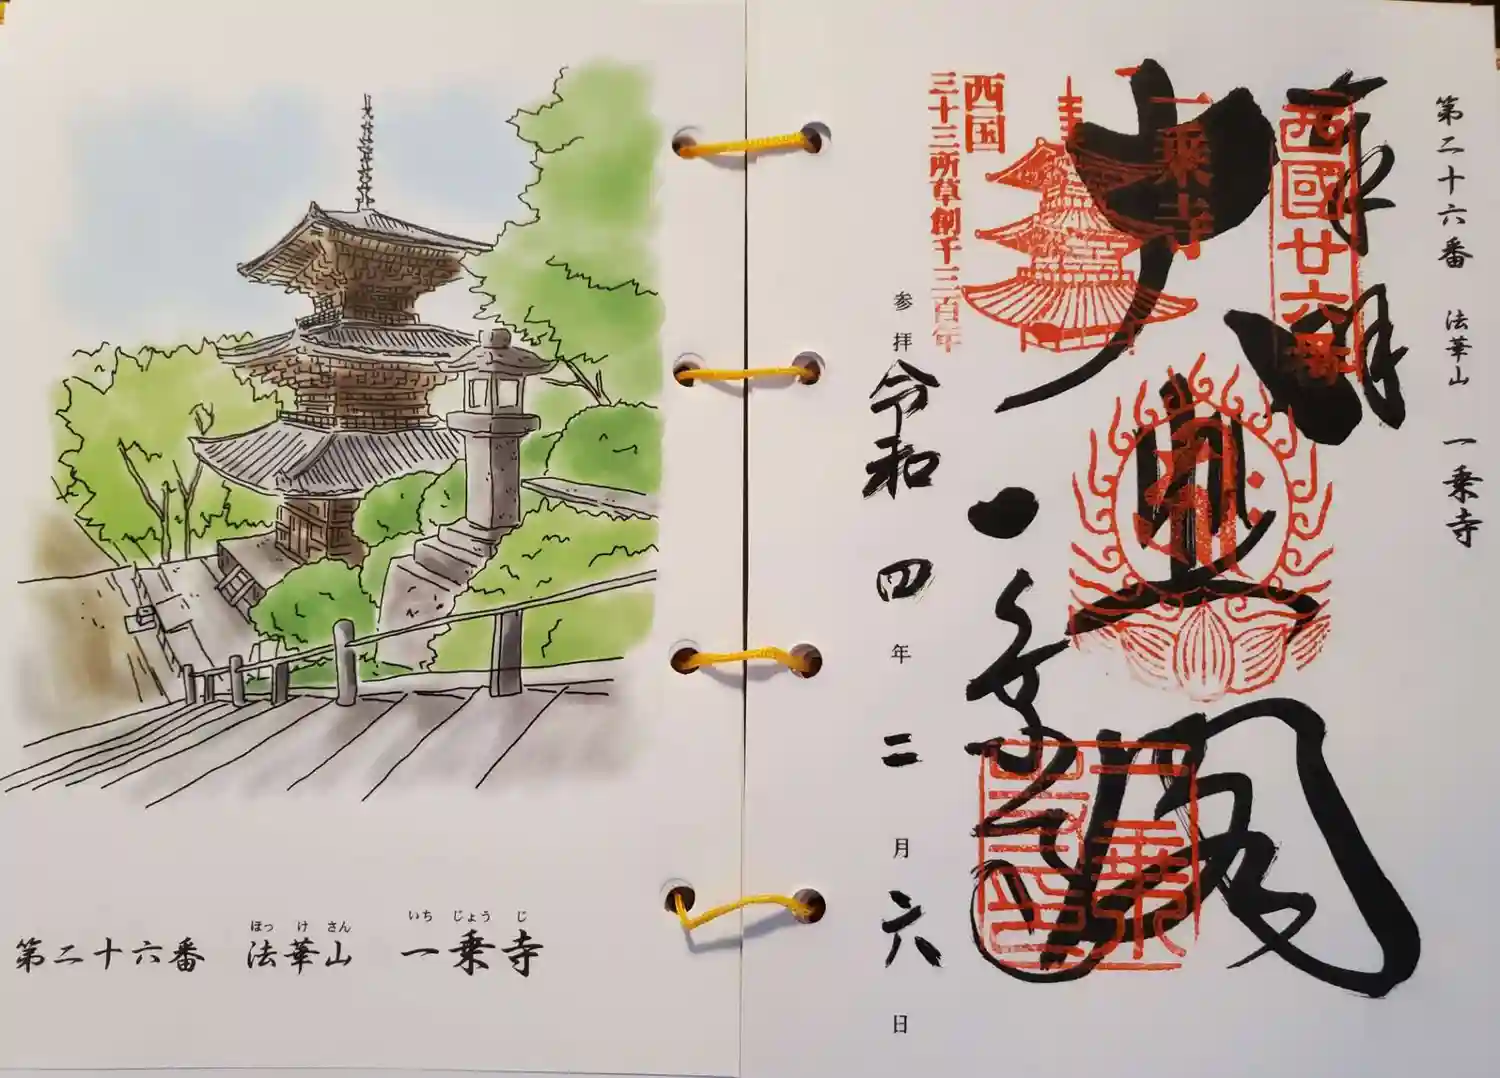 ほっ け さん いち じょう じ
第二十六番 法華山 一乗寺
第二十六番 法華山 一乗寺
奉拝
西國廿六番
大悲閣
一乗寺
一乗寺
一乗寺印
西国
三十三所草創千三百年
参拝 令和四年二月六日